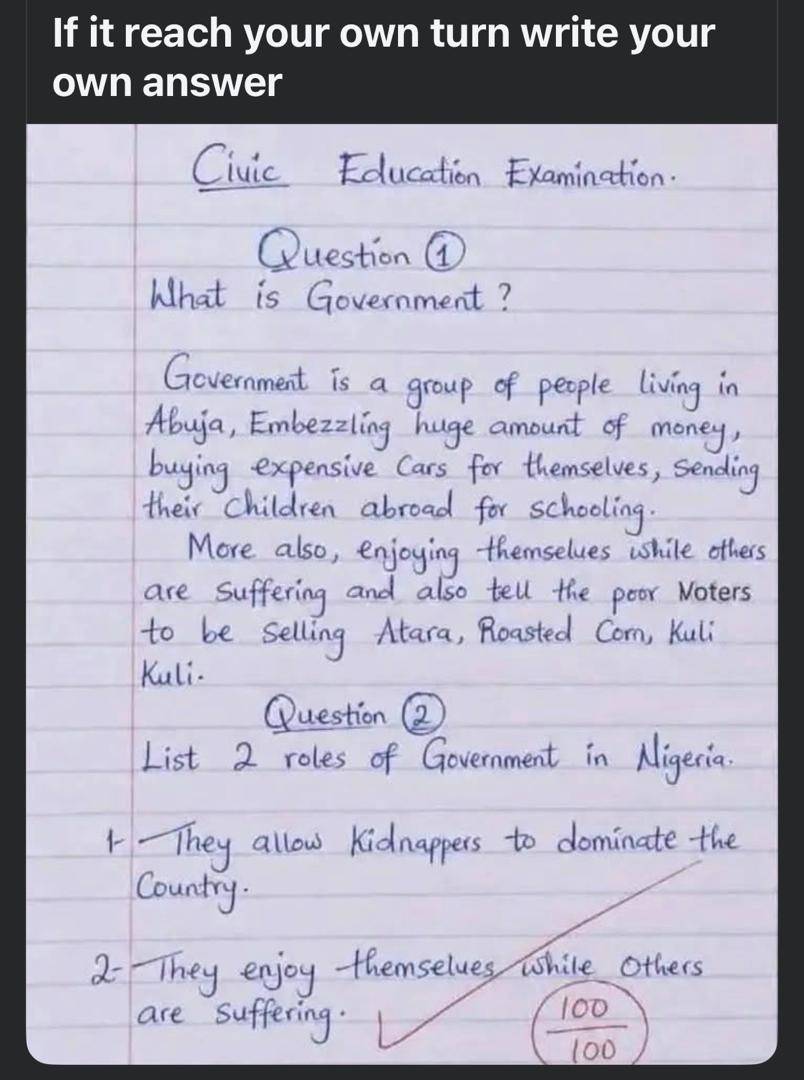 If it reach your own turn write your
own answer
Civic Education Examination.
Question 1
What is Government?
Government is a group of people living in
Abuja, Embezzling huge amount of money,
buying expensive Cars for themselves, Sending
their Children abroad for schooling.
More also, enjoying themselves while others
are Suffering and also tell the poor Voters
to be Selling Atara, Roasted Corn, Kuli
Kuli.
Question 2
List 2 roles of Government in Nigeria.
1- They allow Kidnappers to dominate the
Country.
2- They enjoy themselves while Others
are Suffering.
100
100